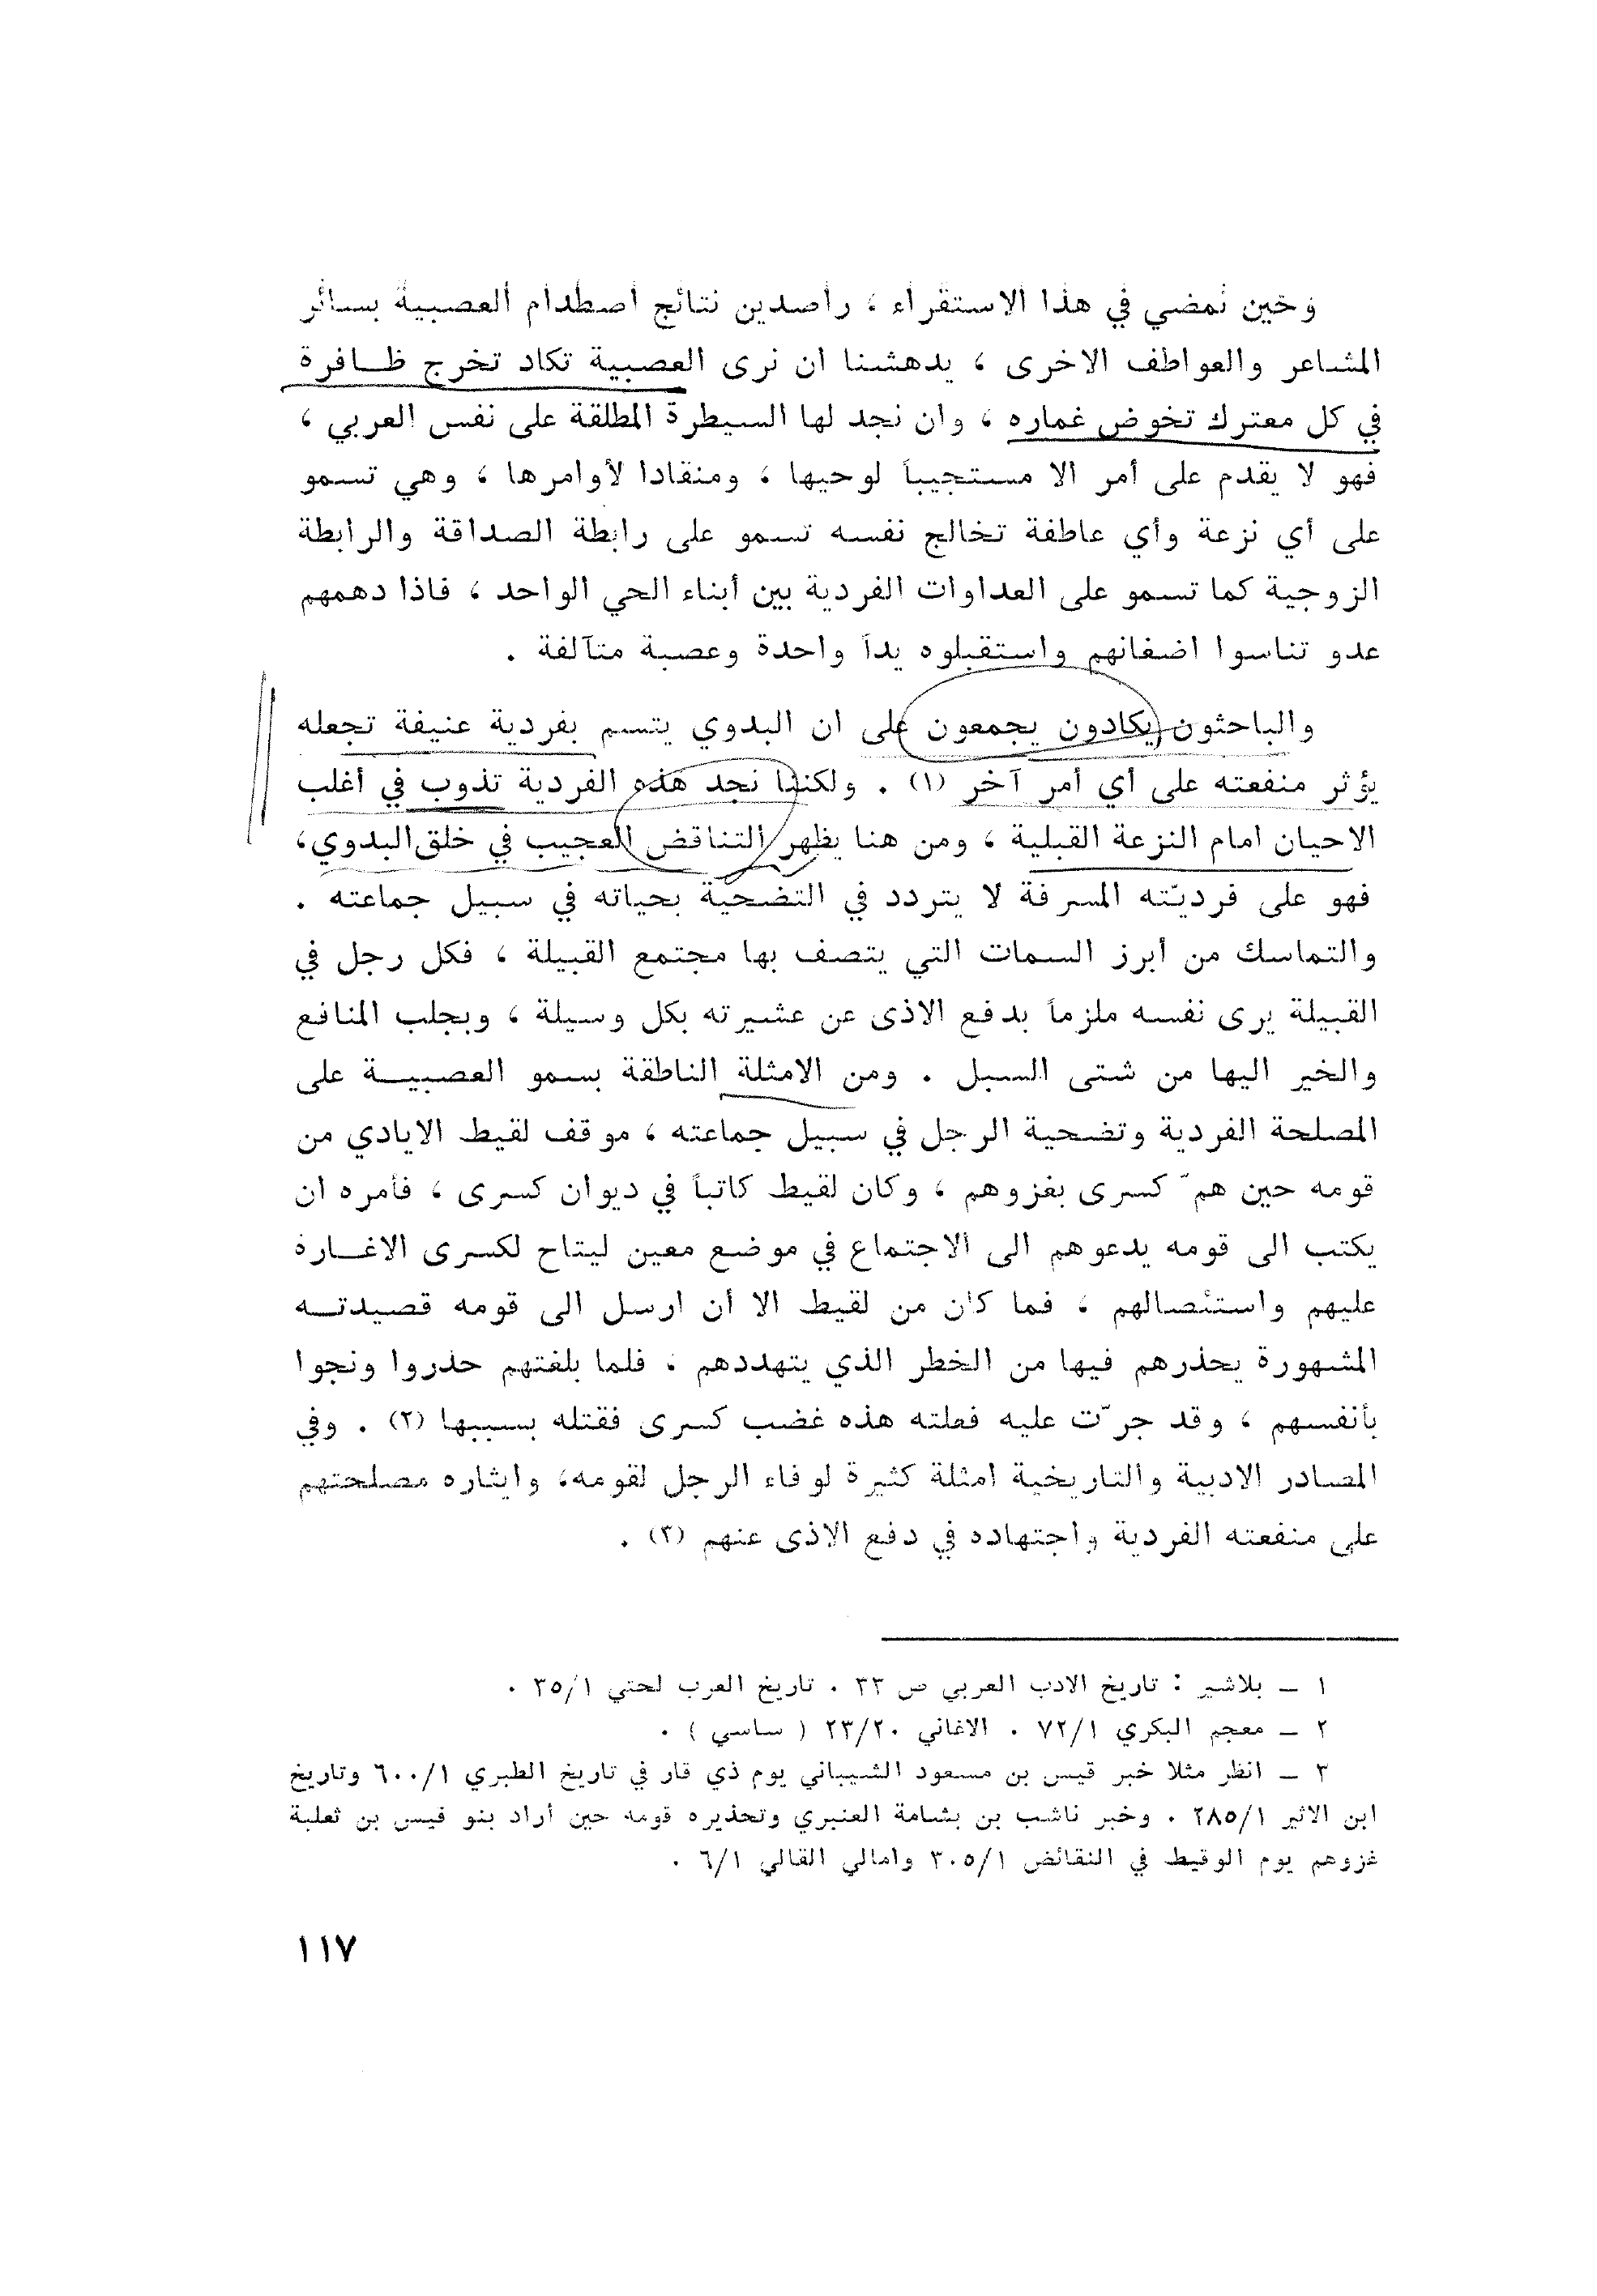 وحين نمضي في هذا الاستقراء ، راصدين نتائج اصطدام العصبية بسائر
المشاعر والعواطف الاخرى ، يدهشنا ان نرى العصبية تكاد تخرج ظـافرة
في كل معترك تخوض غماره ، وان نجد لها السيطرة المطلقة على نفس العربي ،
فهو لا يقدم على أمر الا مستجيباً لوحيها ، ومنقادا لأوامرها ، وهي تسمو
على أي نزعة وأي عاطفة تخالج نفسه تسمو على رابطة الصداقة والرابطة
الزوجية كما تسمو على العداوات الفردية بين أبناء الحي الواحد ، فاذا دهمهم
عدو تناسوا اضغانهم واستقبلوه يداً واحدة وعصبة متآلفة .
والباحثون يكادون يجمعون على ان البدوي يتسم بفردية عنيفة تجعله
يؤثر منفعته على أي أمر آخر (١) . ولكننا نجد هذه الفردية تذوب في أغلب
الاحيان امام النزعة القبلية ، ومن هنا يظهر التناقض العجيب في خلق البدوي،
فهو على فرديّته المسرفة لا يتردد في التضحية بحياته في سبيل جماعته .
والتماسك من أبرز السمات التي يتصف بها مجتمع القبيلة ، فكل رجل في
القبيلة يرى نفسه ملزماً بدفع الاذى عن عشيرته بكل وسيلة ، وبجلب المنافع
والخير اليها من شتى السبل . ومن الامثلة الناطقة بسمو العصبيـــة على
المصلحة الفردية وتضحية الرجل في سبيل جماعته ، موقف لقيط الايادي من
قومه حين همّ كسرى بغزوهم ، وكان لقيط كاتباً في ديوان كسرى ، فأمره ان
يكتب الى قومه يدعوهم الى الاجتماع في موضع معين ليتاح لكسرى الاغـــارة
عليهم واستئصالهم ، فما كان من لقيط الا أن ارسل الى قومه قصيدتـــه
المشهورة يحذرهم فيها من الخطر الذي يتهددهم ، فلما بلغتهم حذروا ونجوا
بأنفسهم ، وقد جرّت عليه فعلته هذه غضب كسرى فقتله بسببها (٢) . وفي
المصادر الادبية والتاريخية امثلة كثيرة لوفاء الرجل لقومه، وايثاره مصلحتهم
على منفعته الفردية واجتهاده في دفع الاذى عنهم (٣) .
١ ــ بلاشير : تاريخ الادب العربي ص ٣٣ . تاريخ العرب لحتي ٣٥/١ .
٢ ــ معجم البكري ٧٢/١ . الاغاني ٢٣/٢٠ ( ساسي ) .
٣ ــ انظر مثلا خبر قيس بن مسعود الشيباني يوم ذي قار في تاريخ الطبري ٦٠٠/١ وتاريخ
ابن الاثير ٢٨٥/١ . وخبر ناشب بن بشامة العنبري وتحذيره قومه حين أراد بنو قيس بن ثعلبة
غزوهم يوم الوقيط في النقائض ٣٠٥/١ وامالي القالي ٦/١ .
١١٧